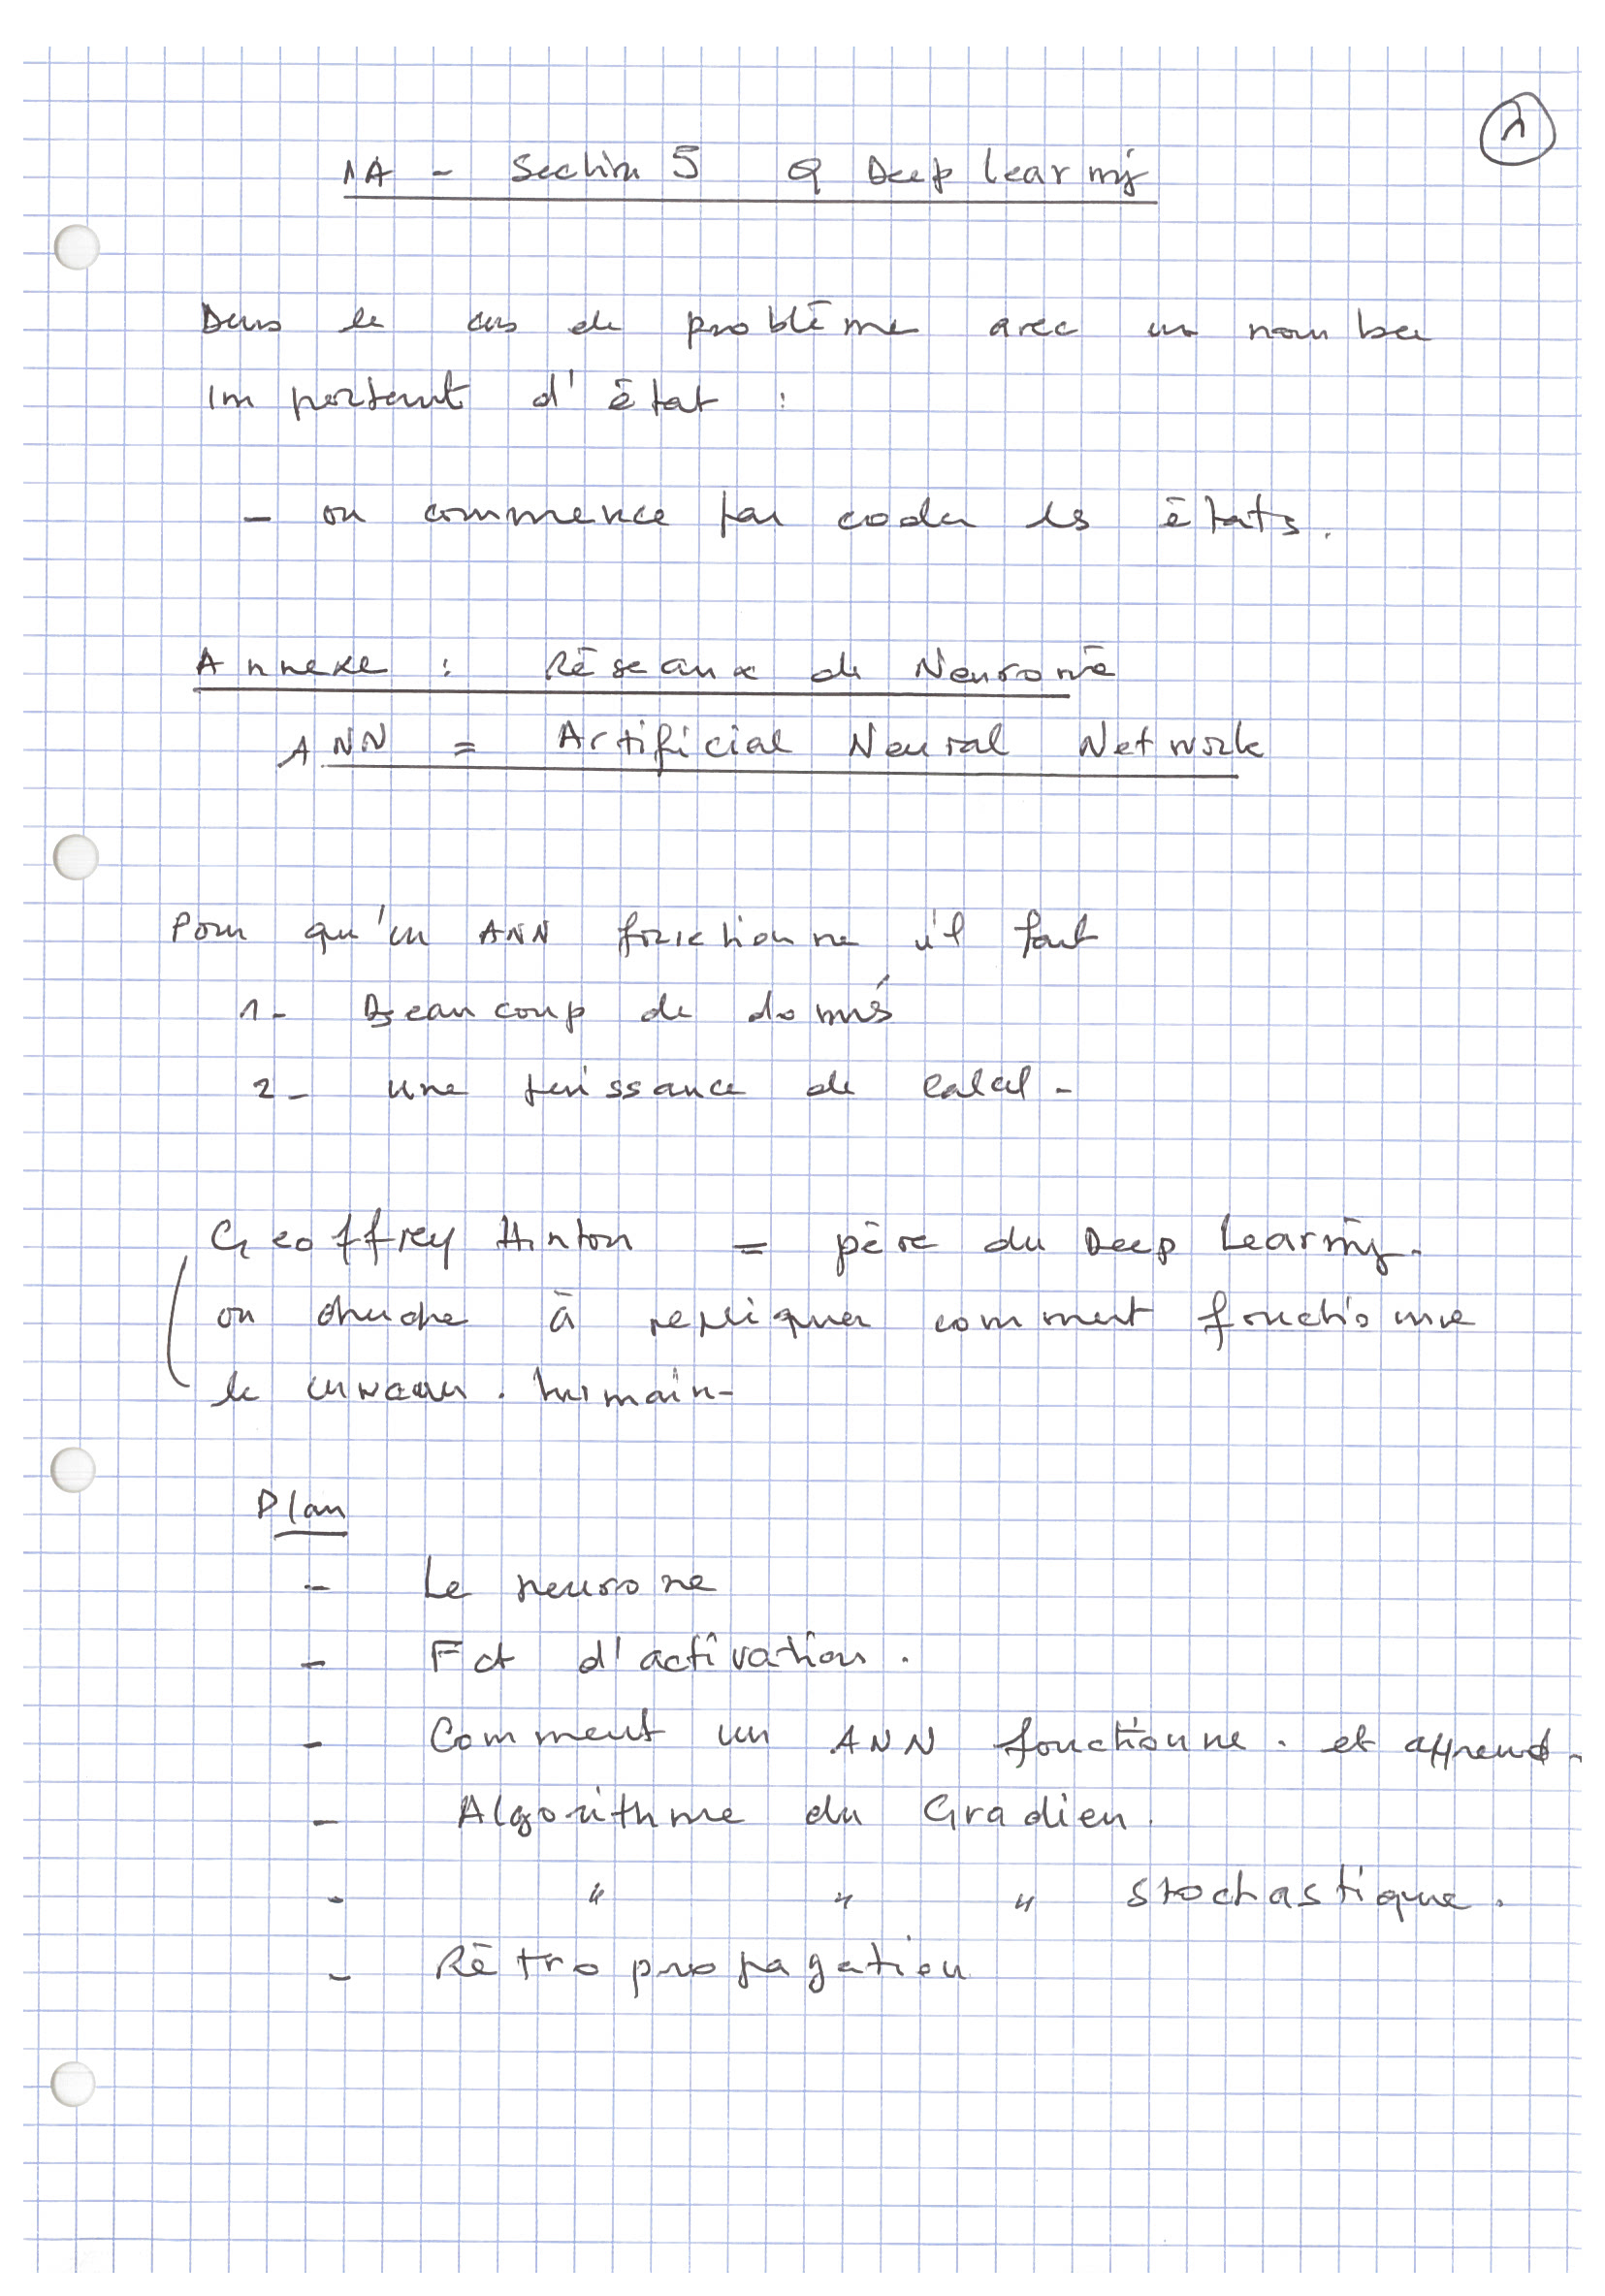 1
IA - Section 5 Q Deep learning
Dans le cas de problème avec un nombre
important d'état :
- on commence par coder les états.
Annexe : Réseaux de Neurone
ANN = Artificial Neural Network
Pour qu'un ANN fonctionne il faut
1- Beaucoup de donnés
2- une puissance de calcul -
Geoffrey Hinton = père du Deep Learning.
on cherche à repliquer comment fonctionne
le cerveau . humain-
Plan
- Le neurone
- Fct d'activation .
- Comment un ANN fonctionne . et apprend -
- Algorithme du Gradien .
- " " " stochastique .
- Rétro propagation